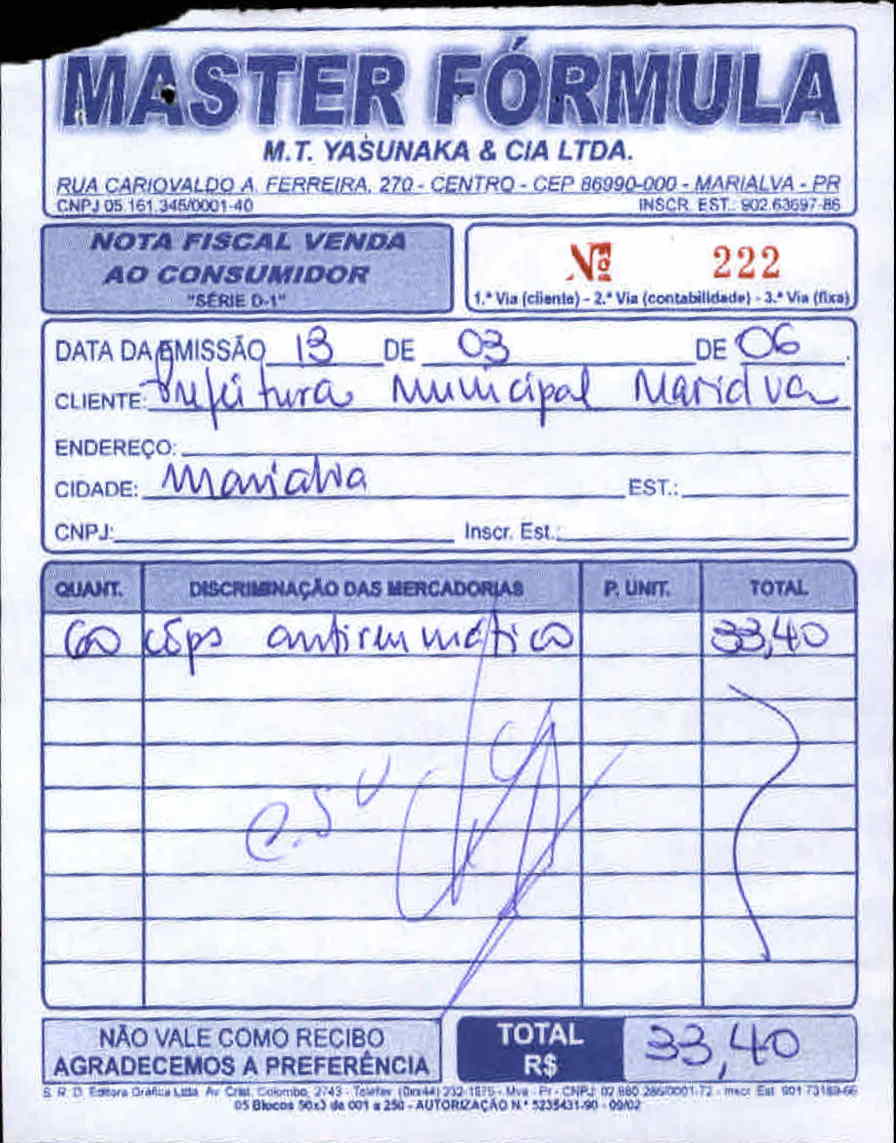 MASTER FÓRMULA
M.T. YASUNAKA & CIA LTDA.
RUA CARIOVALDO A. FERREIRA, 270 - CENTRO - CEP 86990-000 - MARIALVA - PR
CNPJ 05.161.345/0001-40 INSCR. EST.: 902.63697-86
NOTA FISCAL VENDA
AO CONSUMIDOR
"SÉRIE D-1"
Nº 222
1.ª Via (cliente) - 2.ª Via (contabilidade) - 3.ª Via (fixa)
DATA DA EMISSÃO 13 DE 03 DE 06
CLIENTE: Prefeitura Municipal Marialva
ENDEREÇO:
CIDADE: Marialva EST.:
CNPJ: Inscr. Est.:
QUANT. DISCRIMINAÇÃO DAS MERCADORIAS P. UNIT. TOTAL
60 cáps antireumático 33,40
NÃO VALE COMO RECIBO
AGRADECEMOS A PREFERÊNCIA
TOTAL
R$ 33,40
S. R. D. Editora Gráfica Ltda. Av. Crist. Colombo, 2743 - Telefax (0xx44) 232-1875 - Mva - Pr - CNPJ: 02.880.286/0001-72 - Inscr. Est. 901.73189-66
05 Blocos 50x3 de 001 a 250 - AUTORIZAÇÃO N.º 5235431-90 - 09/02